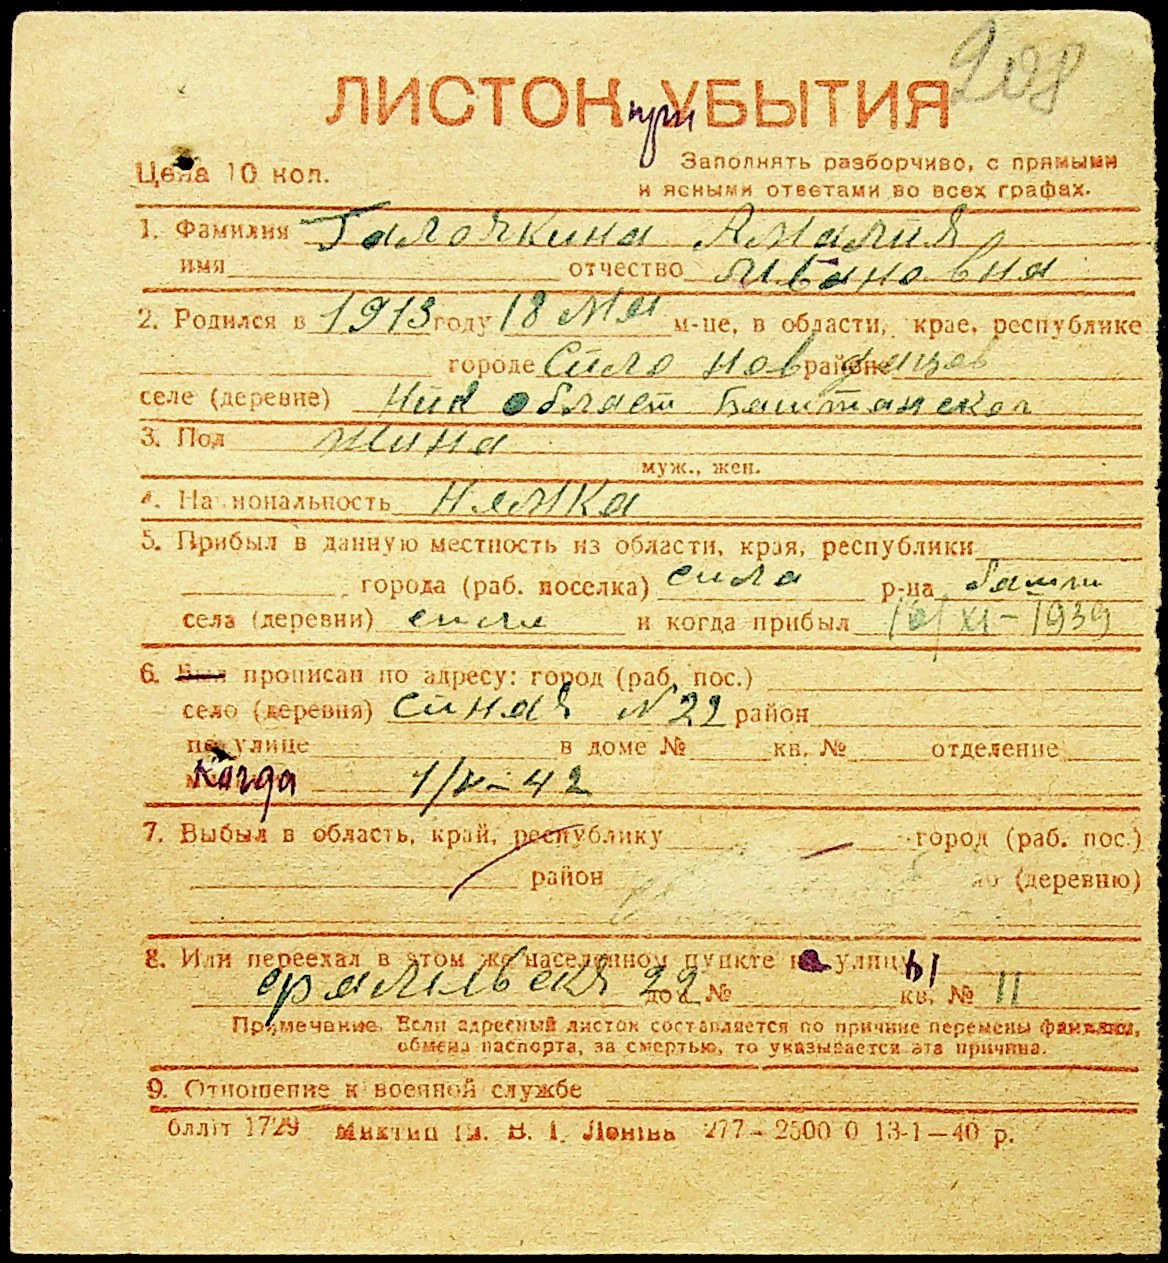 208
ЛИСТОК УБЫТИЯ
при
Цена 10 коп. Заполнять разборчиво, с прямыми
и ясными ответами во всех графах.
1. Фамилия Галочкина Амалия
имя отчество Ивановна
2. Родился в 1913 году 18 Мая м-це, в области, крае, республике
городе Сило Нов районе
селе (деревне) Ник област Баштанской
3. Пол жина
муж., жен.
4. Национальность Нямка
5. Прибыл в данную местность из области, края, республики
города (раб. поселка) сила р-на башт
села (деревни) и когда прибыл 16/XI-1939
6. Был прописан по адресу: город (раб. пос.)
село (деревня) Синая N 22 район
по улице в доме № кв. № отделение
Когда 1/V-42
7. Выбыл в область, край, республику город (раб. пос.)
район (деревню)
8. Или переехал в этом же населенном пункте на улицы
22 дом № кв. № 11
Примечание. Если адресный листок составляется по причине перемены фамилии,
обмена паспорта, за смертью, то указывается эта причина.
9. Отношение к военной службе
блліт 1729 Миктип ім. В. І. Леніна 277-2500 0 13-1-40 р.